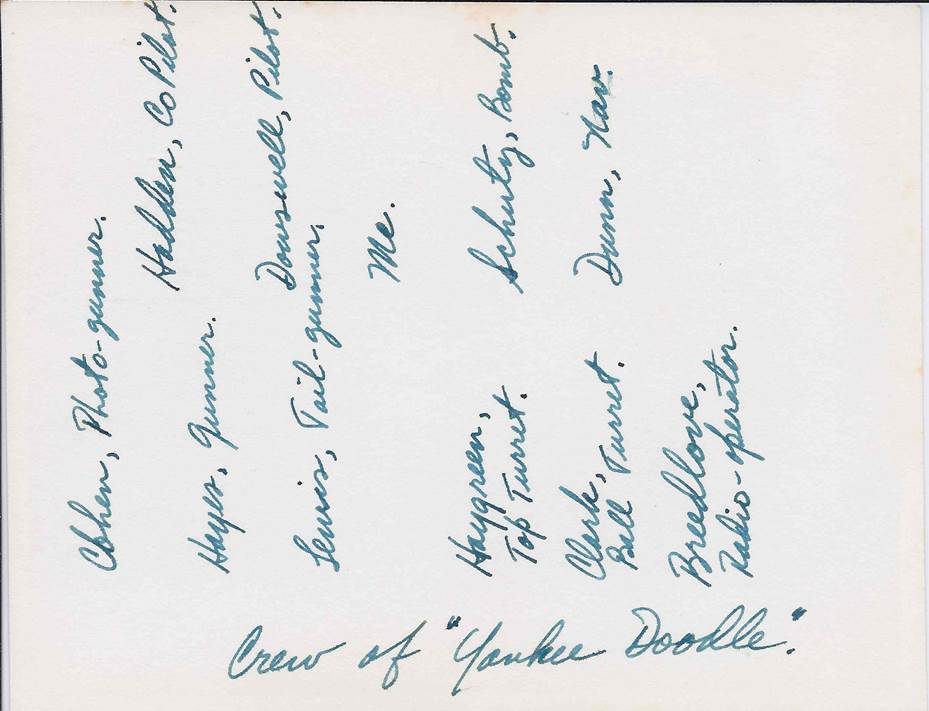 Cohen, Photo-gunner.
Hadden, Co Pilot.
Hayes, Gunner.
Dowswell, Pilot.
Lewis, Tail-gunner.
Me.
Haygreen,
Top Turret.
Schutz, Bomb.
Clark,
Ball Turret.
Dunn, Nav.
Breedlove,
Radio-operator.
Crew of "Yankee Doodle".